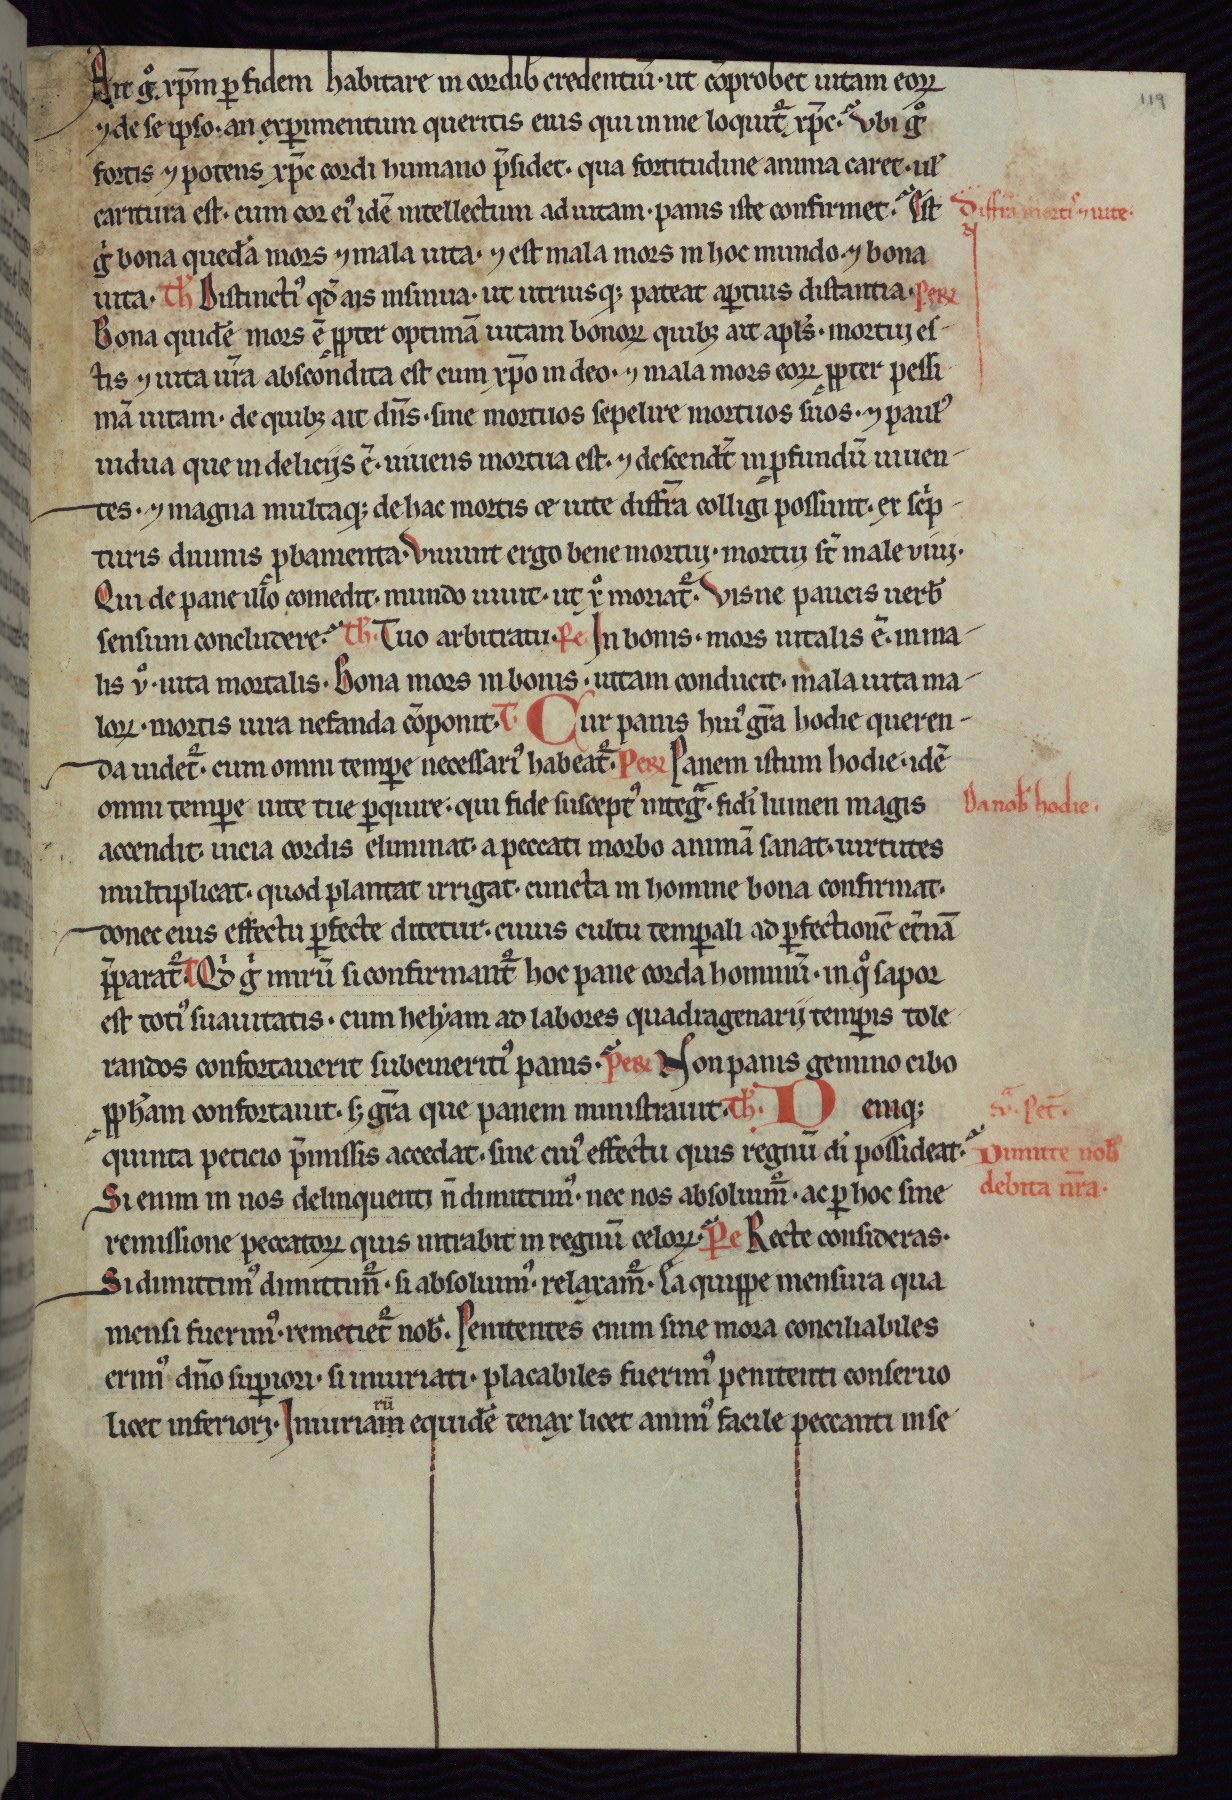 Ait g̊ xp̄m ꝑ fidem habitare in cordib; credentiū· ut cōprobet uitam eoꝝ
⁊ de se ipso· an experimentum queritis eius qui in me loquit᷑ xp̄c· Vbi g̊
fortis ⁊ potens xp̄c cordi humano p̄sidet· qua fortitudine anima caret· ul̄
caritura est· cum cor eiꝰ idē intellectum ad uitam· panis iste confirmet· Est
Diffr̄a mortis ⁊ uite·
g̊ bona quedā mors ⁊ mala uita· ⁊ est mala mors in hoc mundo· ⁊ bona
uita· Th̄ Distinctiꝰ qd̄ ais insinua· ut utriusq; pateat aꝑtius distantia· Per
Bona quidē mors ē ꝓpter optimā uitam bonoꝝ quibꝫ ait apl̄s· mortui es-
tis ⁊ uita ur̄a abscondita est cum xp̄o in deo· ⁊ mala mors eoꝝ ꝓpter pessi
mā uitam· de quibꝫ ait dn̄s· sine mortuos sepelire mortuos suos· ⁊ paulꝰ
uidua que in delicijs ē· uiuens mortua est· ⁊ descendt̄ in ꝓfundū uiuen-
tes· ⁊ magna multaq; de hac mortis æ uite diffr̄a colligi possunt· ex scᵢp-
turis diuinis ꝓbamenta· Viuunt ergo bene mortui· mortui st̄ male viui·
Qui de pane illo comedit· mundo uiuit· ut x̊ moriat᷑· Visne paucis uerb̄
sensum concludere· Th̄· Tuo arbitratu· Pe In bonis· mors uitalis ē· in ma-
lis v̊· uita mortalis· Bona mors in bonis· uitam conducit· mala uita ma-
loꝝ· mortis iura nefanda cōponit· T· Cur panis huiꝰ gr̄a hodie queren-
da uidet᷑· cum omni tempe necessariꝰ habeat᷑· Per Panem istum hodie· idē
omni tempe uite tue ꝑquire· qui fide susceptꝰ integra· fidi lumen magis
Da nob̄ hodie·
accendit· uicia cordis eliminat· a peccati morbo animā sanat· uirtutes
multiplicat· quod plantat irrigat· cuncta in homine bona confirmat·
donec eius effectu ꝑfecte ditetur· cuius cultu temꝑali ad ꝑfectionē et̄nā
p̄parat᷑· T Qd̄ g̊ mirū si confirmant᷑ hoc pane corda hominū· in q̊ sapor
est totiꝰ suauitatis· cum helyam ad labores quadragenarij temꝑis tole
randos confortauerit subcineritiꝰ panis· Per Non panis gemino cibo
ꝓph̄am confortauit· sꝫ gr̄a que panem ministrauit· Th̄· Deniq;
v̄· Pet̄·
quinta peticio p̄missis accedat· sine cuiꝰ effectu quis regnū di possideat·
Dimitte nob̄
debita nr̄a·
Si enim in nos delinquenti n̄ dimittimꝰ· nec nos absoluim᷑· ac ꝑ hoc sine
remissione peccatoꝝ quis intrabit in regnū celoꝝ· Pe Recte consideras·
Si dimittimꝰ dimittim᷑· si absoluimꝰ· relaxam᷑· Ea quippe mensura qua
mensi fuerimꝰ· remetiet᷑ nob̄· Penitentes enim sine mora conciliabiles
erimꝰ dn̄o suꝑiori· si iniuriati· placabiles fuerimꝰ penitenti conseruo
licet inferiori· Iniuriam rū equidē tenax licet animꝰ facile peccanti in se
119